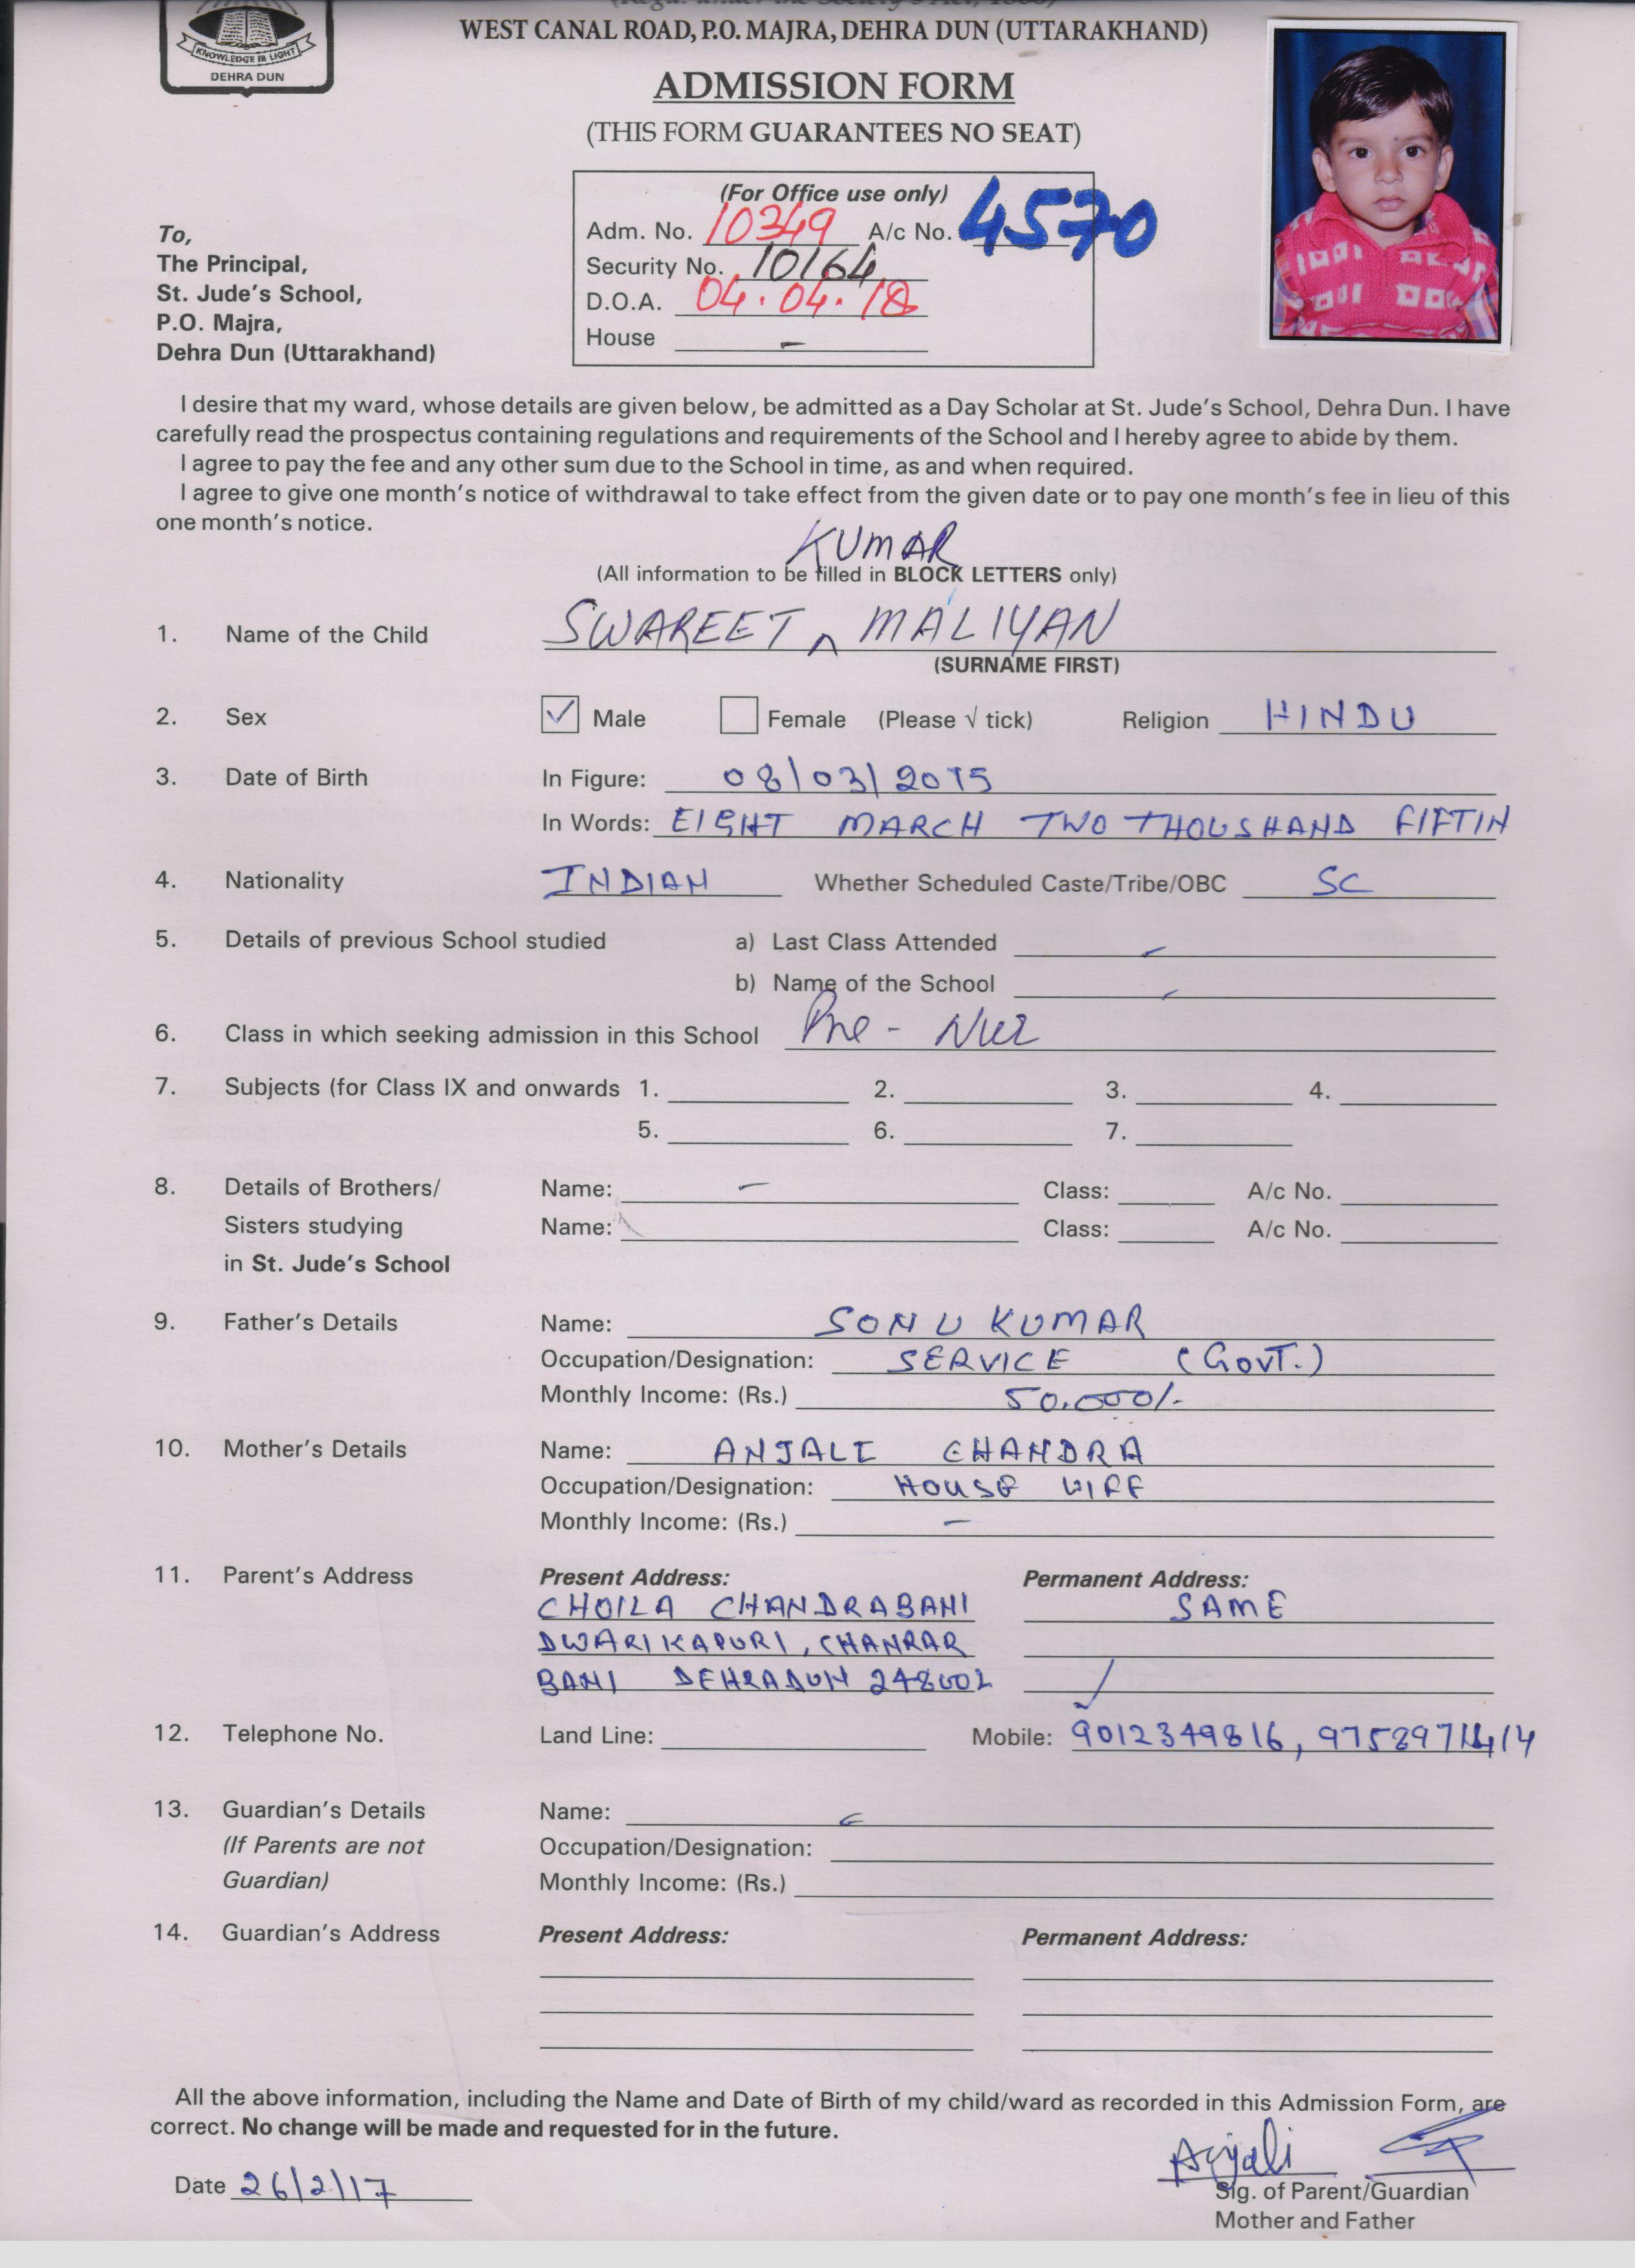 KNOWLEDGE IS LIGHT
DEHRA DUN
WEST CANAL ROAD, P.O. MAJRA, DEHRA DUN (UTTARAKHAND)
ADMISSION FORM
(THIS FORM GUARANTEES NO SEAT)
(For Office use only)
Adm. No. 10349 A/c No. 4570
Security No. 10164
D.O.A. 04.04.18
House -
To,
The Principal,
St. Jude's School,
P.O. Majra,
Dehra Dun (Uttarakhand)
I desire that my ward, whose details are given below, be admitted as a Day Scholar at St. Jude's School, Dehra Dun. I have
carefully read the prospectus containing regulations and requirements of the School and I hereby agree to abide by them.
I agree to pay the fee and any other sum due to the School in time, as and when required.
I agree to give one month's notice of withdrawal to take effect from the given date or to pay one month's fee in lieu of this
one month's notice.
KUMAR
(All information to be filled in BLOCK LETTERS only)
1. Name of the Child SWAREET ^ MALIYAN
(SURNAME FIRST)
2. Sex ✓ Male Female (Please √ tick) Religion HINDU
3. Date of Birth In Figure: 08/03/2015
In Words: EIGHT MARCH TWO THOUSHAND FIFTIN
4. Nationality INDIAN Whether Scheduled Caste/Tribe/OBC SC
5. Details of previous School studied a) Last Class Attended -
b) Name of the School -
6. Class in which seeking admission in this School Pre - Nur
7. Subjects (for Class IX and onwards 1. 2. 3. 4.
5. 6. 7.
8. Details of Brothers/ Name: - Class: A/c No.
Sisters studying Name: Class: A/c No.
in St. Jude's School
9. Father's Details Name: SONU KUMAR
Occupation/Designation: SERVICE (GOVT.)
Monthly Income: (Rs.) 50,000/-
10. Mother's Details Name: ANJALI CHANDRA
Occupation/Designation: HOUSE WIFE
Monthly Income: (Rs.) -
11. Parent's Address Present Address: Permanent Address:
CHOILA CHANDRABANI SAME
DWARIKAPURI, CHANRAR
BANI DEHRADUN 248002
12. Telephone No. Land Line: Mobile: 9012349816,
13. Guardian's Details Name:
(If Parents are not Occupation/Designation:
Guardian) Monthly Income: (Rs.)
14. Guardian's Address Present Address: Permanent Address:
All the above information, including the Name and Date of Birth of my child/ward as recorded in this Admission Form, are
correct. No change will be made and requested for in the future.
Anjali
Date 26/2/17
Sig. of Parent/Guardian
Mother and Father